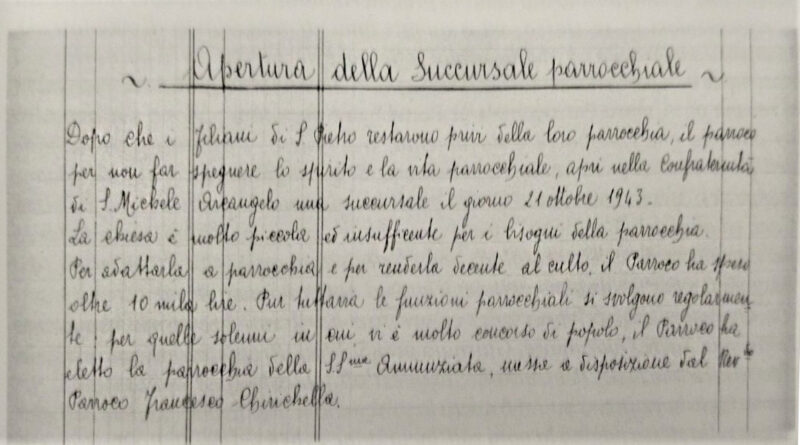 ~ Apertura della Succursale parrocchiale ~
Dopo che i filiani di S Pietro restarono privi della loro parrocchia, il parroco
per non far spegnere lo spirito e la vita parrocchiale, aprì nella Confraternita
di S. Michele Arcangelo una succursale il giorno 21 ottobre 1943.
La chiesa è molto piccola ed insufficente per i bisogni della parrocchia.
Per adattarla a parrocchia e per renderla decente al culto, il Parroco ha speso
oltre 10 mila lire. Pur tuttavia le funzioni parrocchiali si svolgono regolarmen
te; per quelle solenni in cui vi è molto concorso di popolo, il Parroco ha
eletto la parrocchia della SS.ma Annunziata, messa a disposizione dal Rev.do
Parroco Francesco Chirichella.